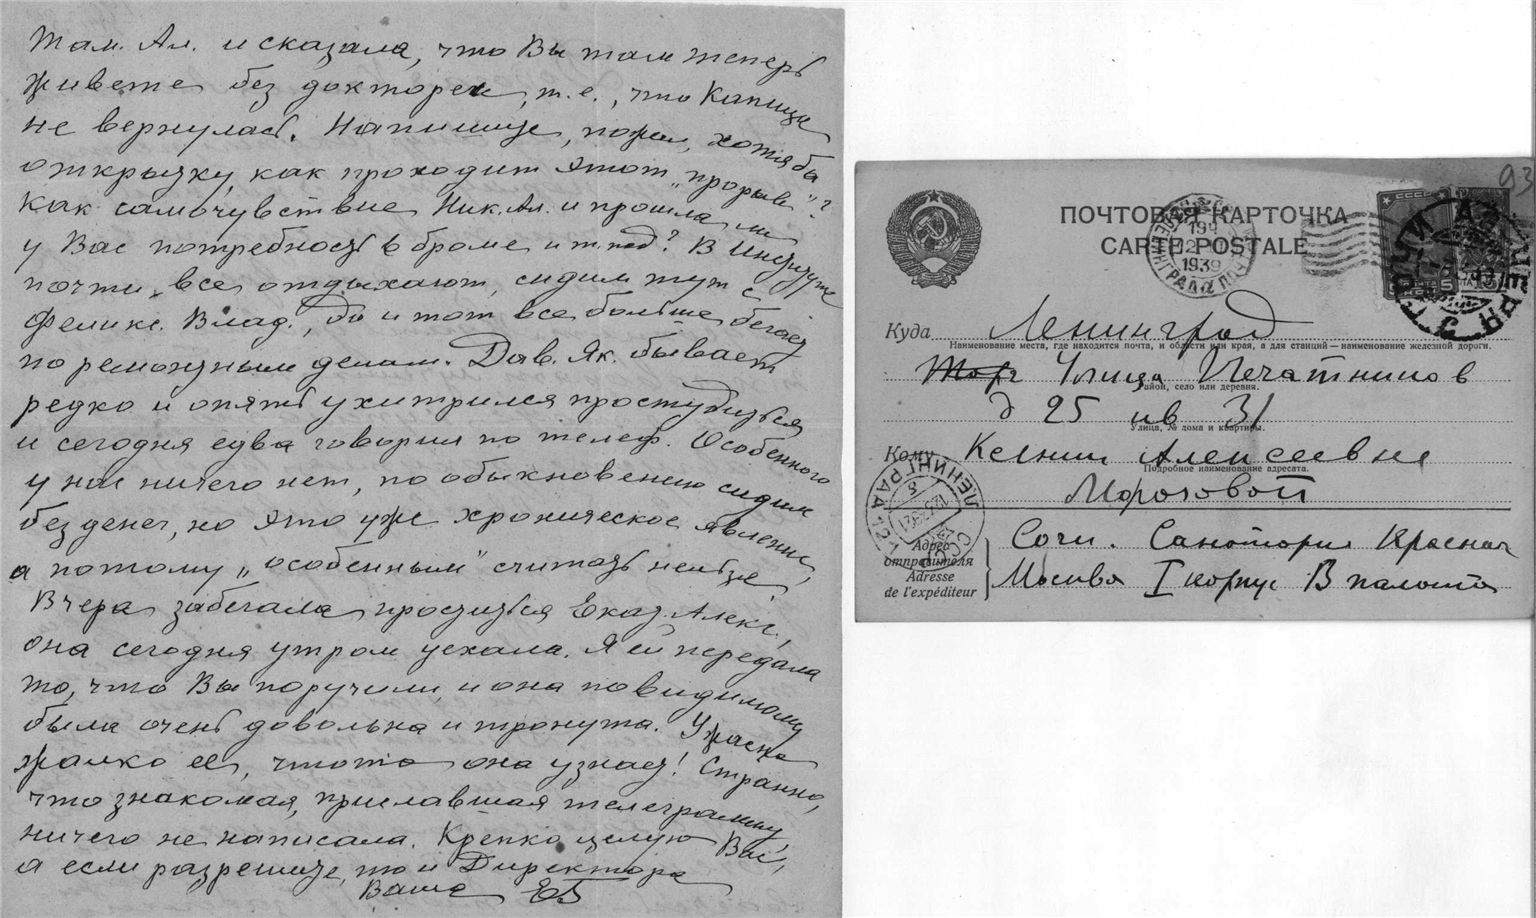 Там. Ал. и сказала, что Вы там теперь
живете без доктореи, т.е., что Капица
не вернулась. Напишите, пожал, хотя бы
открытку, как проходит этот „прорыв"?
как самочувствие Ник. Ал. и прошла ли
у Вас потребность в броме и т.под? В Институте
почти все отдыхают, сидим тут с
Феликс. Влад., да и тот все больше бегает
по ремонтным делам. Дав. Як. бывает
редко и опять ухитрился простудиться
и сегодня едва говорил по телеф. Особенного
у нас ничего нет, по обыкновению сидим
без денег, но это уже хроническое явление,
а потому „особенным" считать нельзя
Вчера забегала проститься Екат. Алекс.,
она сегодня утром уехала. Я ей передала
то, что Вы поручили, и она повидимому
была очень довольна и тронута. Ужасно
жалко ее, что-то она узнает! Странно,
что знакомая, приславшая телеграмму,
ничего не написала. Крепко целую Вас,
а если разрешите, то и Директора
Ваша ЕБ
93
ПОЧТОВАЯ КАРТОЧКА
CARTE POSTALE
1939
Куда Ленинград
Наименование места, где находится почта, и области или края, а для станций — наименование железной дороги.
Улица Печатников
Район, село или деревня.
д 25 кв 31
Улица, № дома и квартиры.
Кому Ксении Алексеевне
Подробное наименование адресата.
Морозовой
ЛЕНИНГРАД
СССР
Адрес отправителя
Adresse de l'expéditeur
Сочи. Санатория Красная
Москва I корпус В палата